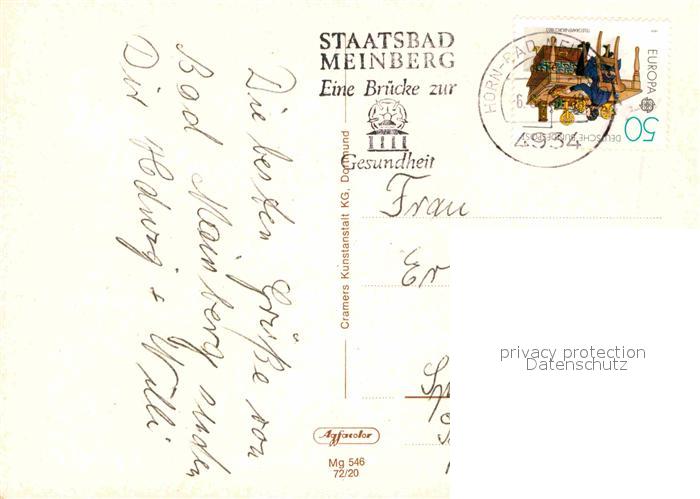 STAATSBAD
MEINBERG
Eine Brücke zur
Gesundheit
HORN-BAD MEI
6.
4934
EUROPA
50
DEUTSCHE BUNDESPOST
Die besten Grüße von
Bad Mainberg senden
Dir Hedwig + Willi
Cramers Kunstanstalt KG, Dortmund
Frau
Er
Agfacolor
Mg 546
72/20
privacy protection
Datenschutz